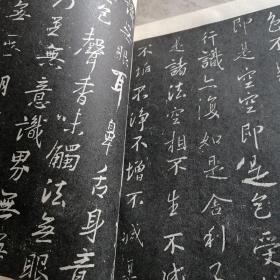 色不
即是空空即是色受
行識亦復如是舍利子
是諸法空相不生不滅
不垢不淨不增不減是
眼耳鼻舌身意
色聲香味觸法無眼
乃至無意識界無
無無明